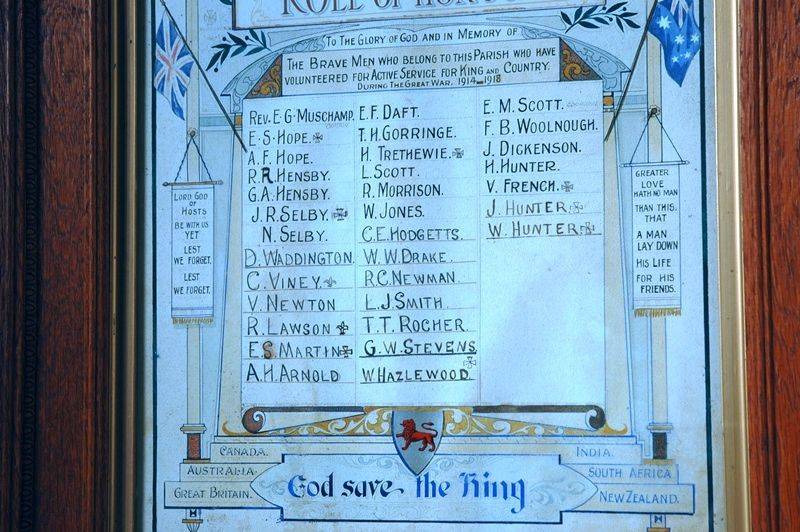 ROLL OF HONOUR
TO THE GLORY OF GOD AND IN MEMORY OF
THE BRAVE MEN WHO BELONG TO THIS PARISH WHO HAVE
VOLUNTEERED FOR ACTIVE SERVICE FOR KING AND COUNTRY.
DURING THE GREAT WAR. 1914-1918
REV. E. G. MUSCHAMP.
E. S. HOPE.
A. F. HOPE.
R. R. HENSBY.
G. A. HENSBY.
J. R. SELBY.
N. SELBY.
D. WADDINGTON
C. VINEY.
V. NEWTON
R. LAWSON
E S. MARTIN
A. H. ARNOLD
E. F. DAFT.
T. H. GORRINGE.
H. TRETHEWIE.
L. SCOTT.
R. MORRISON.
W. JONES.
C. E. HODGETTS.
W. W. DRAKE.
R. C. NEWMAN.
L. J. SMITH.
T. T. ROCHER.
G. W. STEVENS
W. HAZLEWOOD.
E. M. SCOTT.
F. B. WOOLNOUGH.
J. DICKENSON.
H. HUNTER.
V. FRENCH.
J. HUNTER
W. HUNTER
LORD GOD
OF
HOSTS
BE WITH US
YET
LEST
WE FORGET.
LEST
WE FORGET.
GREATER
LOVE
HATH NO MAN
THAN THIS.
THAT
A MAN
LAY DOWN
HIS LIFE
FOR HIS
FRIENDS.
CANADA.
AUSTRALIA.
GREAT BRITAIN.
God save the King
INDIA.
SOUTH AFRICA
NEW ZEALAND.